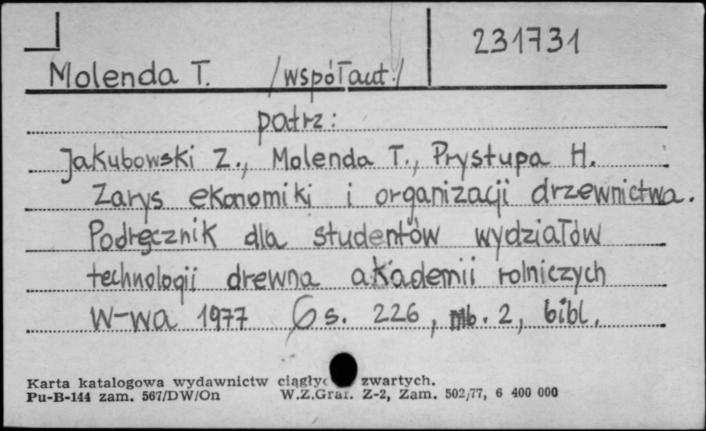 231731
Molenda T. /współaut./
patrz:
Jakubowski Z., Molenda T., Prystupa H.
Zarys ekonomiki i organizacji drzewnictwa.
Podręcznik dla studentów wydziałów
technologii drewna akademii rolniczych
W-wa 1977 s. 226, nlb. 2, bibl.
Karta katalogowa wydawnictw ciągłyc zwartych.
Pu-B-144 zam. 567/DW/On W.Z.Graf. Z-2, Zam. 502/77, 6 400 000